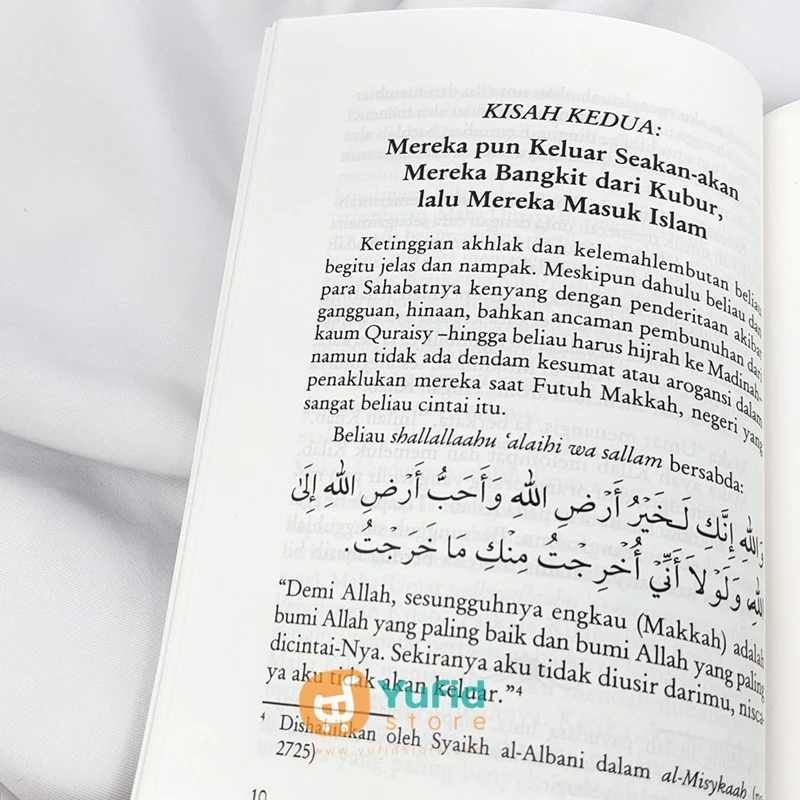 KISAH KEDUA:
Mereka pun Keluar Seakan-akan
Mereka Bangkit dari Kubur,
lalu Mereka Masuk Islam
Ketinggian akhlak dan kelemahlembutan beliau
begitu jelas dan nampak. Meskipun dahulu beliau dan
para Sahabatnya kenyang dengan penderitaan akibat
gangguan, hinaan, bahkan ancaman pembunuhan dari
kaum Quraisy –hingga beliau harus hijrah ke Madinah–
namun tidak ada dendam kesumat atau arogansi dalam
penaklukan mereka saat Futuh Makkah, negeri yang
sangat beliau cintai itu.
Beliau shallallaahu ‘alaihi wa sallam bersabda:
وَاللهِ إِنَّكِ لَخَيْرُ أَرْضِ اللهِ وَأَحَبُّ أَرْضِ اللهِ إِلَى
اللهِ وَلَوْلاَ أَنِّي أُخْرِجْتُ مِنْكِ مَا خَرَجْتُ.
“Demi Allah, sesungguhnya engkau (Makkah) adalah
bumi Allah yang paling baik dan bumi Allah yang paling
dicintai-Nya. Sekiranya aku tidak diusir darimu, nisca-
ya aku tidak akan keluar.”4
4 Dishahihkan oleh Syaikh al-Albani dalam al-Misykaah
2725)
10
Yufid
store
www.yufidstore